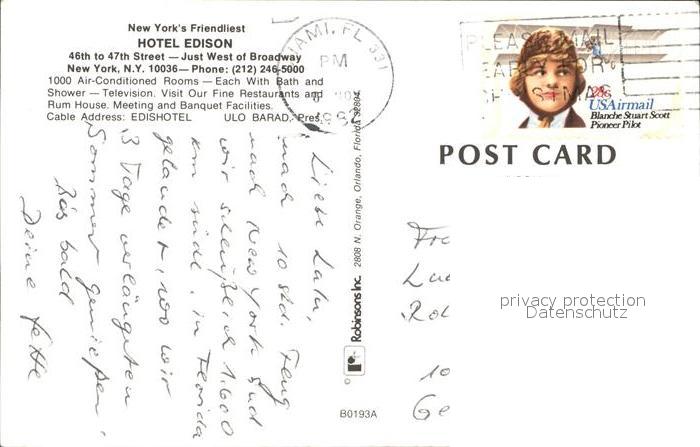 New York's Friendliest
HOTEL EDISON
46th to 47th Street — Just West of Broadway
New York, N.Y. 10036 — Phone: (212) 246-5000
1000 Air-Conditioned Rooms — Each With Bath and
Shower — Television. Visit Our Fine Restaurants and
Rum House. Meeting and Banquet Facilities.
Cable Address: EDISHOTEL ULO BARAD, Pres.
MIAMI, FL 331
PM
PLEASE MAIL
EARLY FOR
CHRISTMAS
28c
USAirmail
Blanche Stuart Scott
Pioneer Pilot
POST CARD
Liebe Lalu,
nach 10 std. Flug
nach New York sind
wir schließlich 1.600
km südl. in Florida
gelandet, wo wir
3 Tage verlängerten
Sommer genießen.
Bis bald
Deine
Robinsons Inc. 2808 N. Orange, Orlando, Florida 32804
B0193A
privacy protection
Datenschutz
10